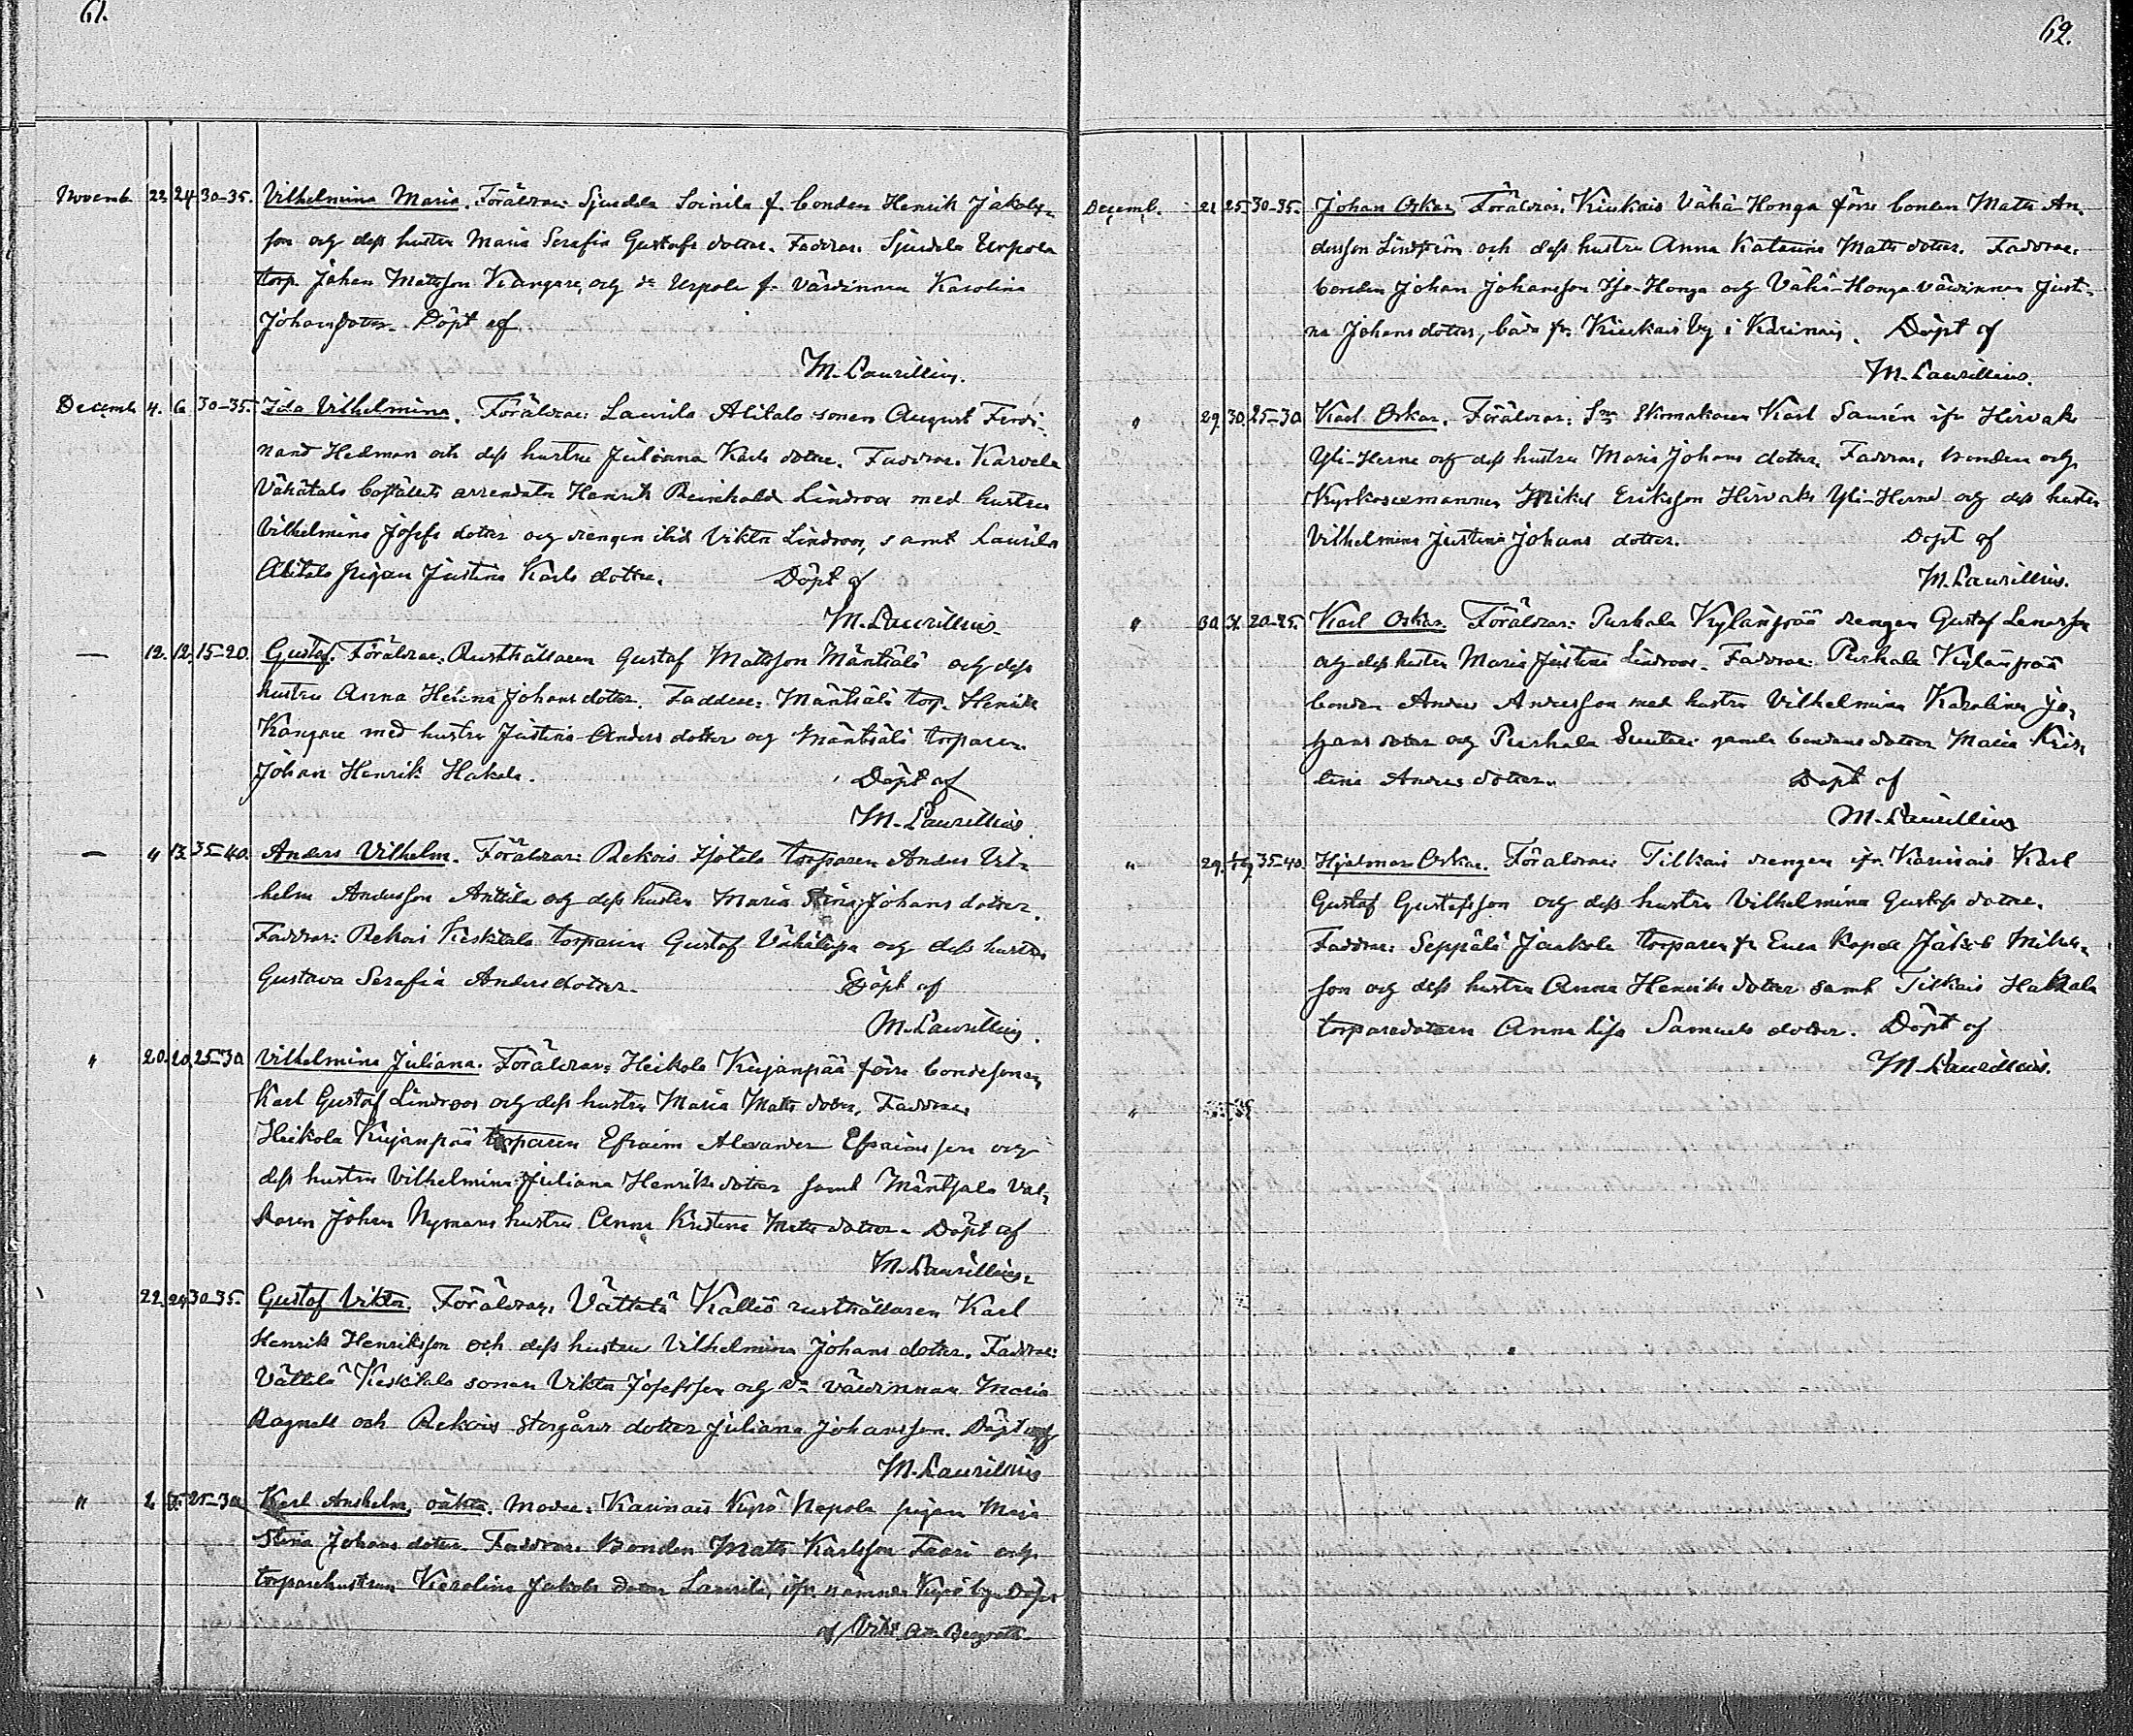 61.
Novemb. 22. 24. 30-35. Vilhelmina Maria. Föräldrar: Sjuedela Soinila f. bonden Henrik Jakobs-
son och dess hustru Maria Serafia Gustafs dotter. Faddrar: Sjuedela Uerpola
torp. Johan Mattsson Kangare, och do Uerpola f. värdinnan Karolina
Johansdotter. Döpt af
M. Laurillius.
Decemb. 4. 6. 30-35. Ida Vilhelmina. Föräldrar: Laurila Alitalo sonen August Ferdi-
nand Hedman och dess hustru Juliana Karls dotter. Faddrar: Karvela
Vähätalo boställets arrendator Henrik Reinhold Lindroos med hustru
Vilhelmina Josefs dotter och drengen ibid Viktor Lindroos, samt Laurila
Alitalo pigan Justina Karls dotter. Döpt af
M. Laurillius.
— 12. 12. 15-20. Gustaf. Föräldrar: Rusthållaren Gustaf Mattsson Mäntsälä och dess
hustru Anna Helena Johansdotter. Faddrar: Mäntsälä torp. Henrik
Kangare med hustru Justina Anders dotter och Mäntsälä torparen
Johan Henrik Hakala. Döpt af
M. Laurillius.
— " 13. 35-40. Anders Vilhelm. Föräldrar: Rekois Isotalo torparen Anders Vil-
helm Andersson Anttila och dess hustru Maria Stina Johans dotter.
Faddrar: Rekois Keskitalo torparen Gustaf och dess hustru
Gustava Serafia Andersdotter. Döpt af
M. Laurillius.
" 20. 20. 25-30. Vilhelmina Juliana. Föräldrar: Heikola Kujanpää förre bondesonen
Karl Gustaf Lindroos och dess hustru Maria Matts dotter. Faddrar:
Heikola Kujanpää torparen Efraim Alexander Efraimsson och
dess hustru Vilhelmina Juliana Henriks dotter samt Mäntsälä val-
karen Johan Nymans hustru Anna Kristina Matts dotter. Döpt af
M. Laurillius.
22. 24. 30-35. Gustaf Viktor. Föräldrar: Vättelä Kallio rusthållaren Karl
Henrik Henriksson och dess hustru Vilhelmina Johans dotter. Faddrar:
Vättelä Keskitalo sonen Viktor Josefsson och do värdinnan Maria
Ragnell och Rekois Storgårds dotter Juliana Johansson. Döpt af
M. Laurillius
" 25-30. Karl Anshelm, oäkta. Moder: Karinais Kyrö Nepola pigan Maja
Stina Johans dotter. Faddrar: Bonden Matts Karlsson och
torparehustrun Karolina Jakobs dotter Laurila, ifr. nämnda Kyrö by. Döpt
af
62.
Decemb. 21. 25. 30-35. Johan Oskar. Föräldrar: Kiukais Vähä-Honga förre bonden Matts An-
dersson Lindström och dess hustru Anna Katarina Matts dotter. Faddrar:
bonden Johan Johansson Iso-Honga och Vähä-Honga värdinnan Justi-
na Johans dotter, båda fr. Kiukais by i Karinais. Döpt af
M. Laurillius.
" 29. 30. 25-30. Karl Oskar. Föräldrar: Skomakaren Karl Saurén ifr. Hirvaks
Yli-Herne och dess hustru Maria Johans dotter. Faddrar: bonden och
Kyrkosexmannen Mikel Eriksson Hirvaks Yli-Herne och dess hustru
Vilhelmina Justina Johans dotter. Döpt af
M. Laurillius.
" 30. 31. 20-25. Karl Oskar. Föräldrar: Purhala Kylänpää drengen Gustaf
och dess hustru Maria Justina Lindroos. Faddrar: Purhala Kylänpää
bonden Anders Andersson med hustru Vilhelmina Karolina Jo-
hans dotter och Purhala gamla bondens dotter Maria Kris-
tina Anders dotter. Döpt af
M. Laurillius
" 29. 35-40. Hjalmar Oskar. Föräldrar: Tilkais drengen ifr. Karinais Karl
Gustaf Gustafsson och dess hustru Vilhelmina Gustafs dotter.
Faddrar: Seppälä Jaakola torparen fr. Eura Kapell Jakob Mikels-
son och dess hustru Anna Henriks dotter samt Tilkais Hakkala
torparedottern Anna Lisa Samuels dotter. Döpt af
M. Laurillius.
"